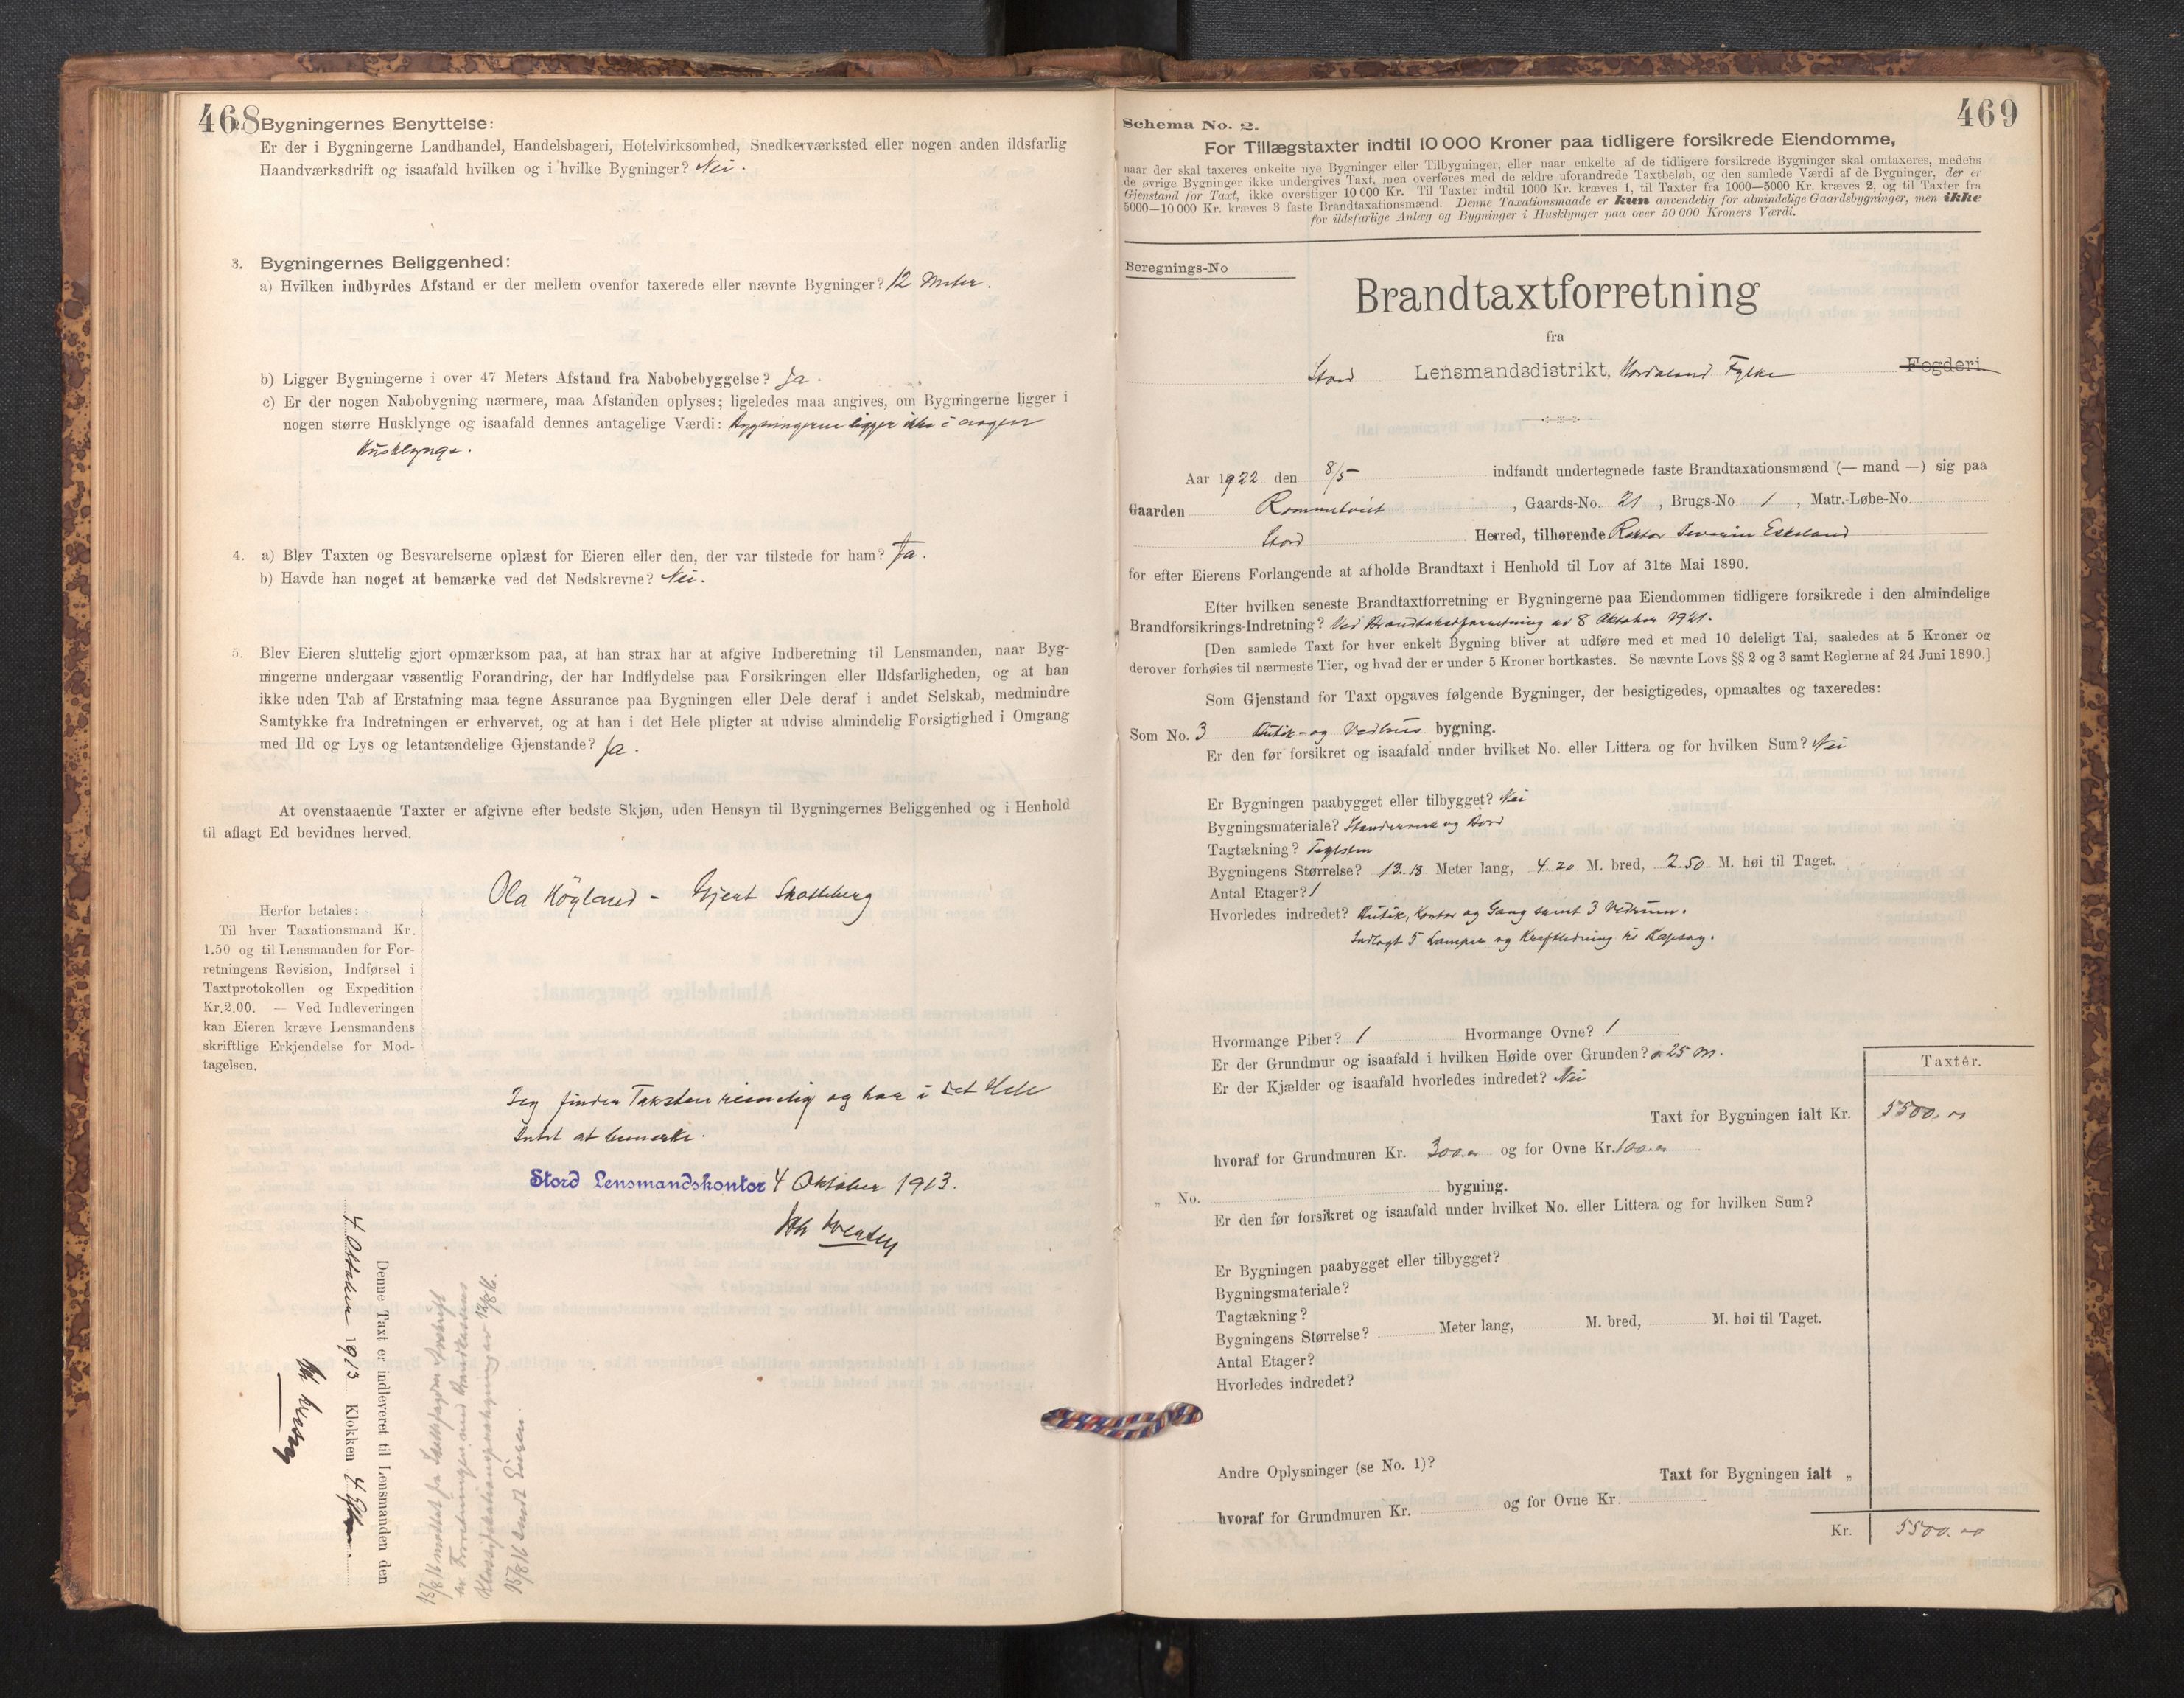 468
Bygningernes Benyttelse:
Er der i Bygningerne Landhandel, Handelsbageri, Hotelvirksomhed, Snedkerværksted eller nogen anden ildsfarlig
Haandværksdrift og isaafald hvilken og i hvilke Bygninger? Nei.
3. Bygningernes Beliggenhed:
a) Hvilken indbyrdes Afstand er der mellem ovenfor taxerede eller nævnte Bygninger? 12 Meter.
b) Ligger Bygningerne i over 47 Meters Afstand fra Nabobebyggelse? Ja.
c) Er der nogen Nabobygning nærmere, maa Afstanden oplyses; ligeledes maa angives, om Bygningerne ligger i
nogen større Husklynge og isaafald dennes antagelige Værdi: Bygningerne ligger ikke i nogen
Husklynge.
4. a) Blev Taxten og Besvarelserne oplæst for Eieren eller den, der var tilstede for ham? Ja.
b) Havde han noget at bemærke ved det Nedskrevne? Nei.
5. Blev Eieren sluttelig gjort opmærksom paa, at han strax har at afgive Indberetning til Lensmanden, naar Byg-
ningerne undergaar væsentlig Forandring, der har Indflydelse paa Forsikringen eller Ildsfarligheden, og at han
ikke uden Tab af Erstatning maa tegne Assurance paa Bygningen eller Dele deraf i andet Selskab, medmindre
Samtykke fra Indretningen er erhvervet, og at han i det Hele pligter at udvise almindelig Forsigtighed i Omgang
med Ild og Lys og letantændelige Gjenstande? Ja.
At ovenstaaende Taxter er afgivne efter bedste Skjøn, uden Hensyn til Bygningernes Beliggenhed og i Henhold
til aflagt Ed bevidnes herved.
Ola Höyland - Gjert Skatteberg
Herfor betales:
Til hver Taxationsmand Kr.
1.50 og til Lensmanden for For-
retningens Revision, Indførsel i
Taxtprotokollen og Expedition
Kr. 2.00. — Ved Indleveringen
kan Eieren kræve Lensmandens
skriftlige Erkjendelse for Mod-
tagelsen.
Jeg finder Taksten rimelig og har i det Hele
Intet at bemerke.
Stord Lensmandskontor 4 Oktober 1913.
Denne Taxt er indleveret til Lensmanden den
4 Oktober 1913 Klokken 4
469
Schema No. 2.
For Tillægstaxter indtil 10 000 Kroner paa tidligere forsikrede Eiendomme,
naar der skal taxeres enkelte nye Bygninger eller Tilbygninger, eller naar enkelte af de tidligere forsikrede Bygninger skal omtaxeres, medens
de øvrige Bygninger ikke undergives Taxt, men overføres med de ældre uforandrede Taxtbeløb, og den samlede Værdi af de Bygninger, der er
Gjenstand for Taxt, ikke overstiger 10 000 Kr. Til Taxter indtil 1000 Kr. kræves 1, til Taxter fra 1000—5000 Kr. kræves 2, og til Taxter fra
5000—10 000 Kr. kræves 3 faste Brandtaxationsmænd. Denne Taxationsmaade er kun anvendelig for almindelige Gaardsbygninger, men ikke
for ildsfarlige Anlæg og Bygninger i Husklynger paa over 50 000 Kroners Værdi.
Beregnings-No
Brandtaxtforretning
fra
Stord Lensmandsdistrikt, Hordaland Fylke Fogderi.
Aar 1922 den 8/5 indfandt undertegnede faste Brandtaxationsmænd (— mand —) sig paa
Gaarden Rommetveit, Gaards-No. 21, Brugs-No. 1, Matr.-Løbe-No.
Stord Herred, tilhørende Rektor Severin Eskeland
for efter Eierens Forlangende at afholde Brandtaxt i Henhold til Lov af 31te Mai 1890.
Efter hvilken seneste Brandtaxtforretning er Bygningerne paa Eiendommen tidligere forsikrede i den almindelige
Brandforsikrings-Indretning? Ved Brandtakstforretning av 8 Oktober 1921.
[Den samlede Taxt for hver enkelt Bygning bliver at udføre med et med 10 deleligt Tal, saaledes at 5 Kroner og
derover forhøies til nærmeste Tier, og hvad der er under 5 Kroner bortkastes. Se nævnte Lovs §§ 2 og 3 samt Reglerne af 24 Juni 1890.]
Som Gjenstand for Taxt opgaves følgende Bygninger, der besigtigedes, opmaaltes og taxeredes:
Som No. 3 Butik- og Vedhus bygning.
Er den før forsikret og isaafald under hvilket No. eller Littera og for hvilken Sum? Nei
Er Bygningen paabygget eller tilbygget? Nei
Bygningsmateriale? Standerverk og Bord
Tagtækning? Teglsten
Bygningens Størrelse? 13.18 Meter lang, 4.20 M. bred, 2.50 M. høi til Taget.
Antal Etager? 1
Hvorledes indredet? Butik, Kontor og Gang samt 3 Vedrum.
Indlagt 5 Lamper og Kraftledning til Kapsag.
Hvormange Piber? 1 Hvormange Ovne? 1
Er der Grundmur og isaafald i hvilken Høide over Grunden? 0.25 m.
Er der Kjælder og isaafald hvorledes indredet? Nei
Taxter.
Taxt for Bygningen ialt Kr. 5500.00
hvoraf for Grundmuren Kr. 300.00 og for Ovne Kr. 100.00
„ No. bygning.
Er den før forsikret og isaafald under hvilket No. eller Littera og for hvilken Sum?
Er Bygningen paabygget eller tilbygget?
Bygningsmateriale?
Tagtækning?
Bygningens Størrelse? Meter lang, M. bred, M. høi til Taget.
Antal Etager?
Hvorledes indredet?
Andre Oplysninger (se No. 1)? Taxt for Bygningen ialt „
hvoraf for Grundmuren Kr. og for Ovne Kr.
Kr. 5500.00